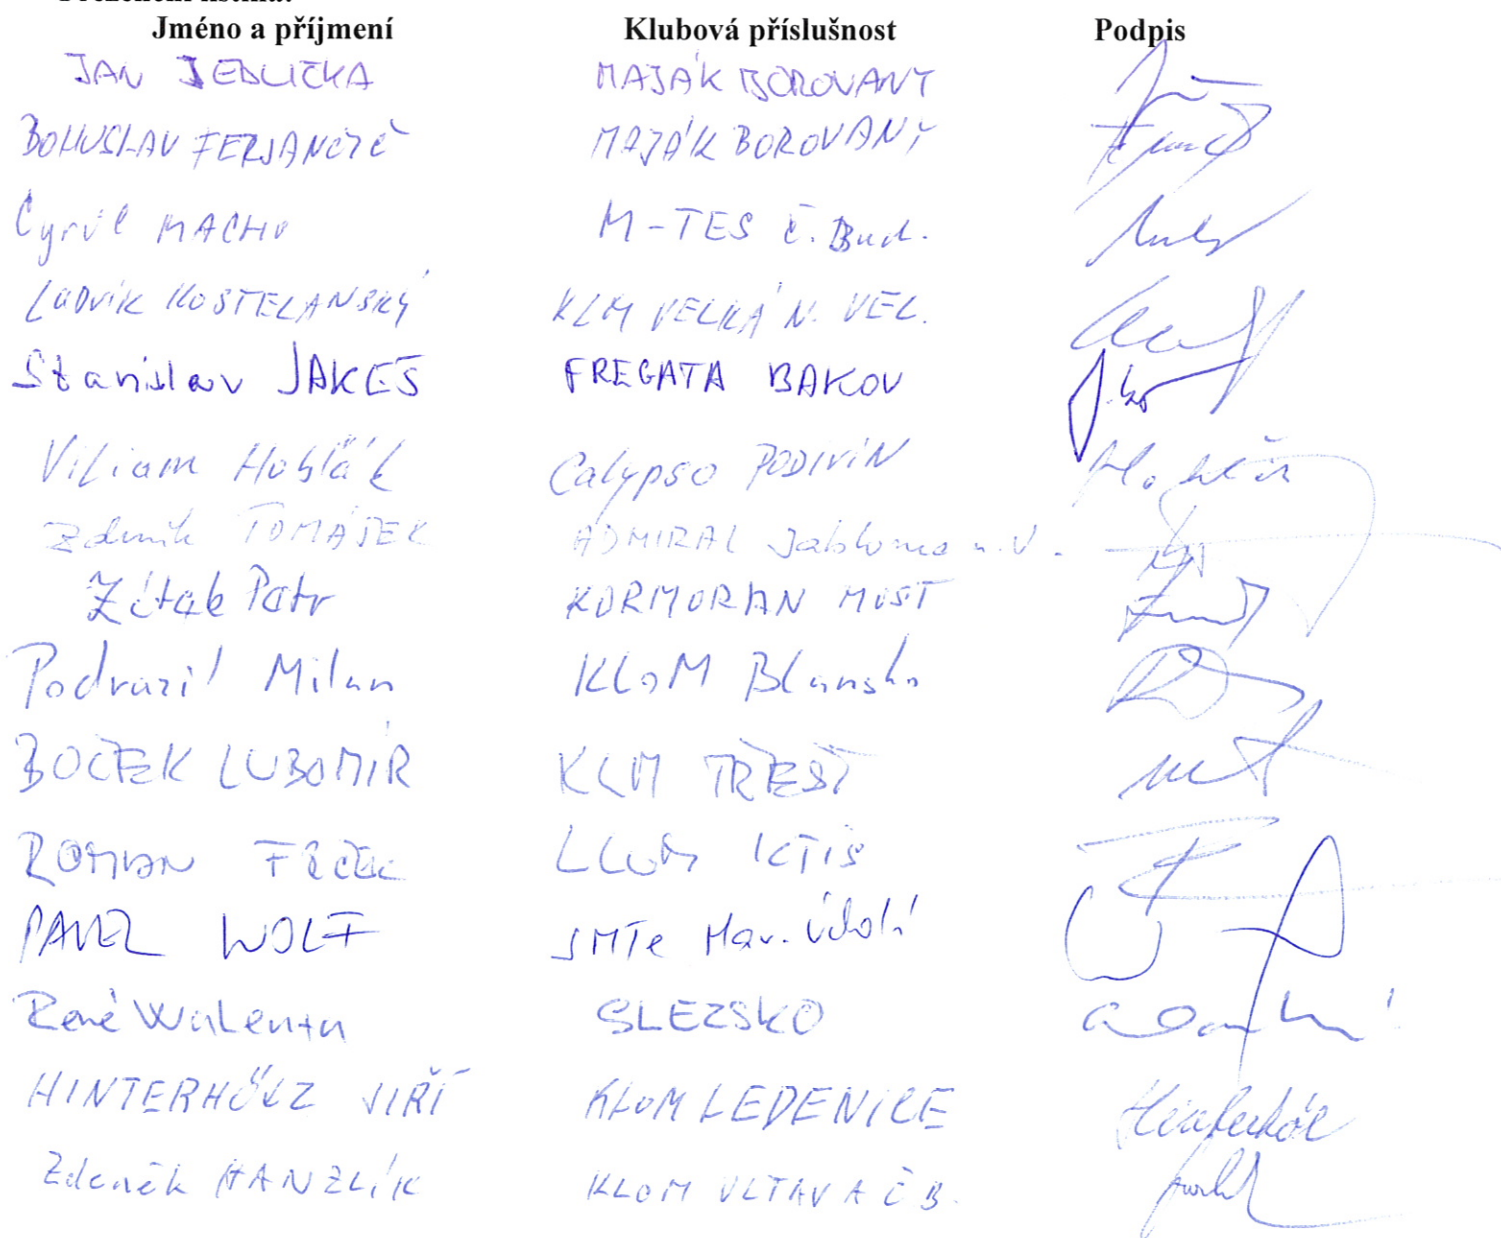 Prezenční listina:
Jméno a příjmení Klubová příslušnost Podpis
JAN JEDLIČKA MAJÁK BOROVANY
BOHUSLAV FERJANČIČ MAJÁK BOROVANY
Cyril MACHO M-TES Č. Bud.
LUDVÍK KOSTELANSKÝ KLM VELKÁ N. VEL.
Stanislav JAKEŠ FREGATA BAKOV
Viliam Hobľák Calypso PODIVÍN
Zdeněk TOMÁŠEK ADMIRAL Jablonec n.N.
Žiťák Petr KORMORAN MOST
Podrazil Milan KLoM Blansko
BOČEK LUBOMÍR KLM TŘEŠŤ
ROMAN KTIŠ
PAVEL WOLF SMTe Mar. Údolí
René Walenta SLEZSKO
HINTERHÖLZ JIŘÍ KLoM LEDENICE
Zdeněk HANZLÍK KLOM VLTAVA Č B.